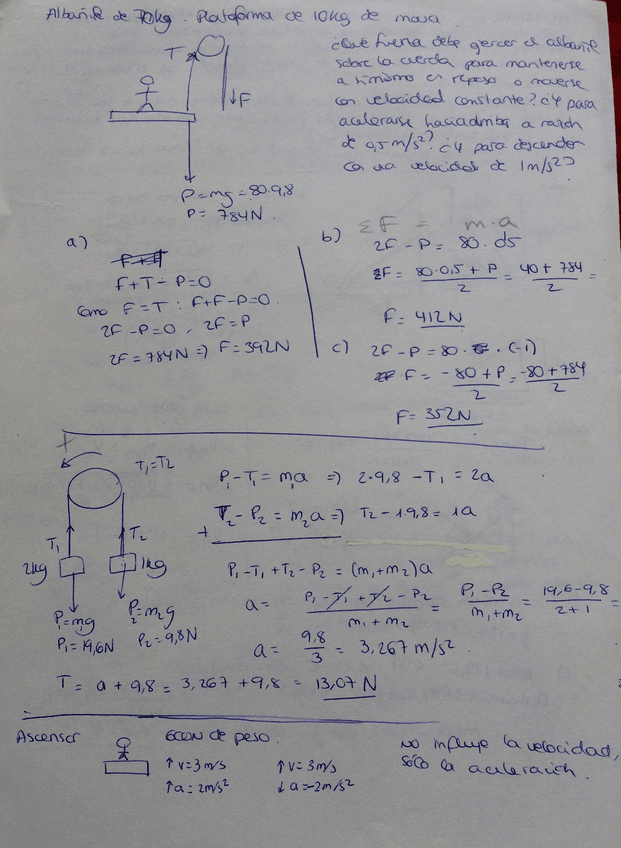 Albañil de 70kg. Plataforma de 10kg de masa
¿Qué fuerza debe ejercer el albañil
sobre la cuerda para mantenerse
a sí mismo en reposo o moverse
con velocidad constante? ¿Y para
acelerarse hacia arriba a razón
de 0,5 m/s²? ¿Y para descender
con una velocidad de 1m/s²?
T
↓F
P=mg=80·9,8
P= 784N
a)
F+T-P=0
Como F=T: F+F-P=0
2F-P=0, 2F=P
2F=784N=> F=392N
b) ΣF = m·a
2F-P= 80·0,5
2F= 80·0,5+P/2 = 40+784/2 =
F= 412N
c) 2F-P=80·(-1)
F= -80+P/2 = -80+784/2
F= 352N
+
T1=T2
T1 T2
2kg 1kg
P1=m1g P2=m2g
P1=19,6N P2=9,8N
P1-T1= m1a => 2·9,8-T1=2a
+ T2-P2= m2a => T2-19,8= 1a
P1-T1+T2-P2=(m1+m2)a
a= P1-T1+T2-P2/m1+m2 = P1-P2/m1+m2 = 19,6-9,8/2+1 =
a= 9,8/3 = 3,267 m/s²
T= a+9,8= 3,267+9,8= 13,07 N
Ascensor
60N de peso.
↑v=3m/s ↑v=3m/s
↑a=2m/s² ↓a=-2m/s²
No influye la velocidad,
sólo la aceleración.